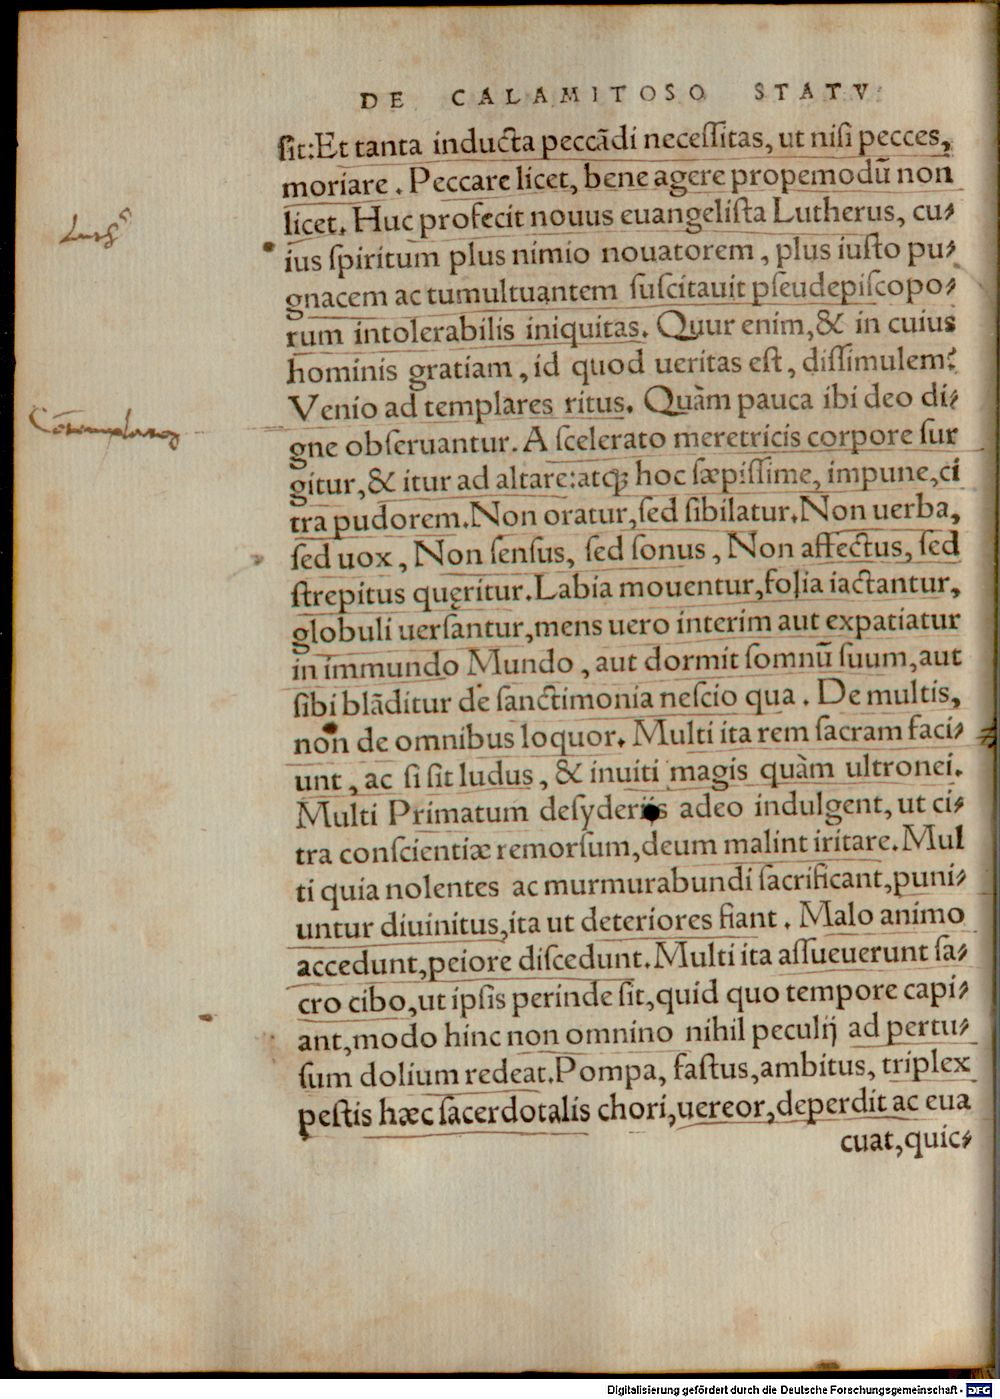 DE CALAMITOSO STATV
ſit:Et tanta inducta peccādi neceſſitas, ut niſi pecces,
moriare . Peccare licet, bene agere propemodū non
licet. Huc profecit nouus euangeliſta Lutherus, cu⸗
ius ſpiritum plus nimio nouatorem , plus iuſto pu⸗
gnacem ac tumultuantem ſuſcitauit pſeudepiſcopo⸗
rum intolerabilis iniquitas. Quur enim,& in cuius
hominis gratiam , id quod ueritas eſt , diſſimulem?
Venio ad templares ritus. Quàm pauca ibi deo di⸗
gne obſeruantur. A ſcelerato meretricis corpore ſur
gitur,& itur ad altare:atq; hoc ſæpiſſime, impune,ci
tra pudorem.Non oratur,ſed ſibilatur.Non uerba,
ſed uox , Non ſenſus, ſed ſonus , Non affectus, ſed
ſtrepitus quęritur.Labia mouentur,folia iactantur,
globuli uerſantur,mens uero interim aut expatiatur
in immundo Mundo , aut dormit ſomnū ſuum,aut
ſibi blāditur de ſanctimonia neſcio qua . De multis,
non de omnibus loquor. Multi ita rem ſacram faci⸗
unt , ac ſi ſit ludus , & inuiti magis quàm ultronei.
Multi Primatum deſyderijs adeo indulgent, ut ci⸗
tra conſcientiæ remorſum,deum malint iritare. Mul
ti quia nolentes ac murmurabundi ſacrificant,puni⸗
untur diuinitus,ita ut deteriores fiant . Malo animo
accedunt,peiore diſcedunt.Multi ita aſſueuerunt ſa⸗
cro cibo,ut ipſis perinde ſit,quid quo tempore capi⸗
ant,modo hinc non omnino nihil peculij ad pertu⸗
ſum dolium redeat.Pompa, faſtus,ambitus, triplex
peſtis hæc ſacerdotalis chori,uereor,deperdit ac eua
cuat,quic⸗
Digitalisierung gefördert durch die Deutsche Forschungsgemeinschaft - DFG